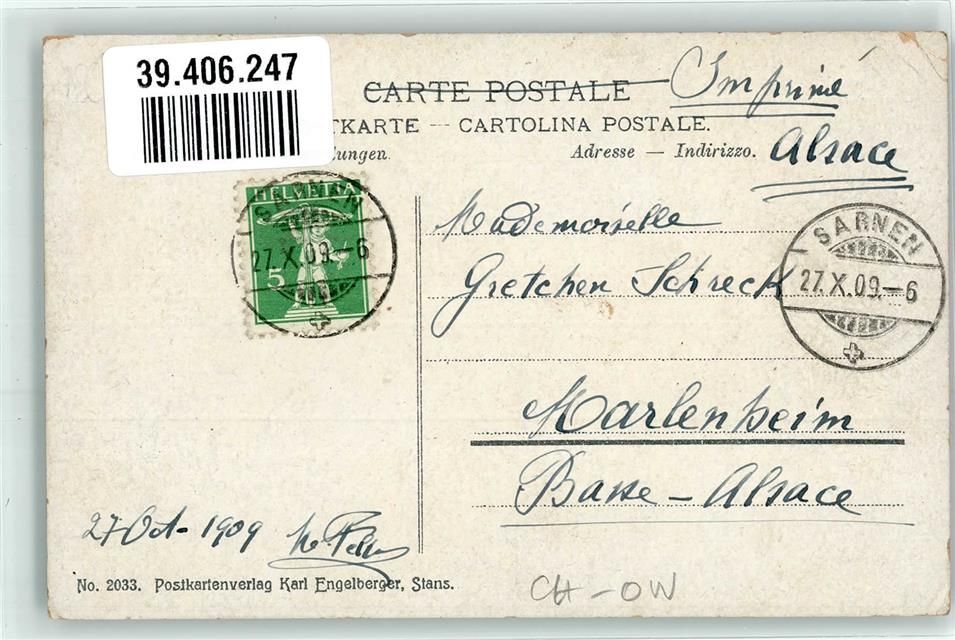 39.406.247
CARTE POSTALE Imprimé
TKARTE — CARTOLINA POSTALE.
lungen. Adresse — Indirizzo. Alsace
HELVETIA
5
SARNEN
27.X.09.–6
SARNEN
27.X.09.–6
Mademoiselle
Gretchen Schreck
Marlenheim
Basse – Alsace
27 Oct. 1909
No. 2033. Postkartenverlag Karl Engelberger, Stans.
CH – OW